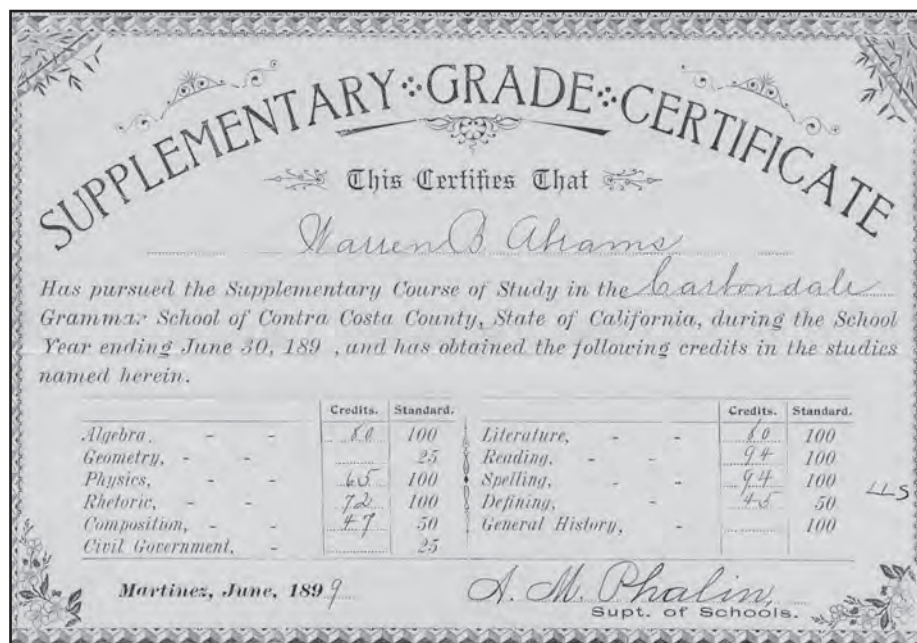 SUPPLEMENTARY GRADE CERTIFICATE
This Certifies That
Warren B Abrams
Has pursued the Supplementary Course of Study in the Carbondale
Grammar School of Contra Costa County, State of California, during the School
Year ending June 30, 189 , and has obtained the following credits in the studies
named herein.
Credits. Standard. Credits. Standard.
Algebra, - - 80 100 Literature, - - 80 100
Geometry, - - 25 Reading, - - 94 100
Physics, - - 65 100 Spelling, - - 94 100
Rhetoric, - - 72 100 Defining, - 45 50
Composition, - - 47 50 General History, - 100
Civil Government, - 25
LLS
Martinez, June, 1899
A. M. Phalin,
Supt. of Schools.